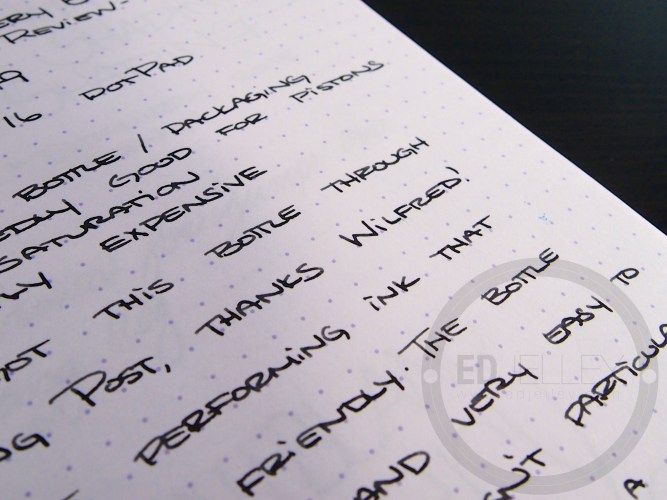 Review-
16 DotPad
Bottle / Packaging
Good for pistons
Saturation
Expensive
this bottle through
Post, thanks Wilfred!
performing ink that
friendly. The bottle
and very easy to
A
ED JELLEY